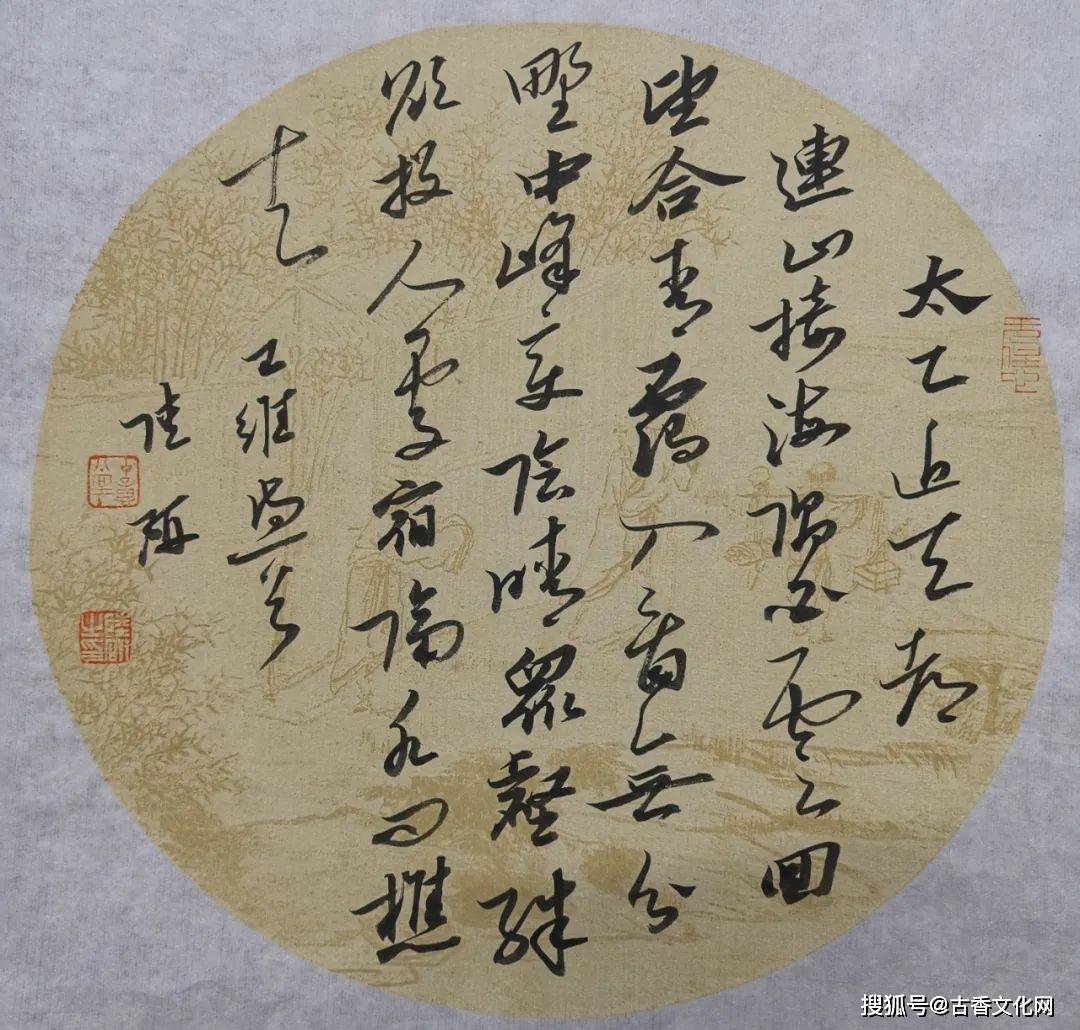 太乙近天都
連山接海隅白雲回
望合青靄入看無分
野中峰變陰晴眾壑殊
欲投人處宿隔水問樵
夫 王維
陸
搜狐号@古香文化网